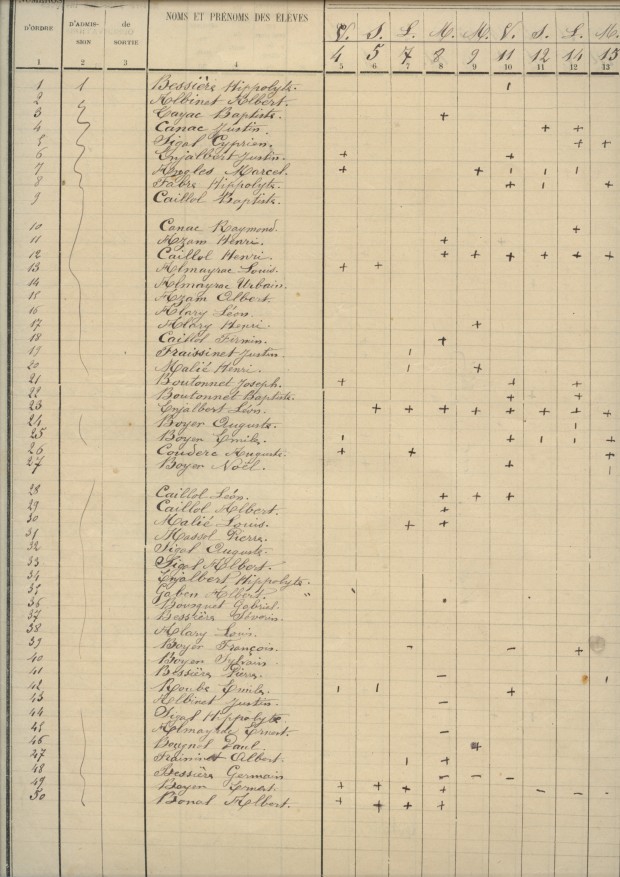 NUMÉROS
D'ORDRE D'ADMISSION de SORTIE NOMS ET PRÉNOMS DES ÉLÈVES V. S. L. M. M. V. S. L. M.
4 5 7 8 9 11 12 14 15
1 2 3 4 5 6 7 8 9 10 11 12 13
1 1 Bessière Hippolyte. ı
2 Albinet Albert.
3 Cayac Baptiste. +
4 Canac Justin. + +
5 Sigal Cyprien. + +
6 Enjalbert Justin. + +
7 Angles Marcel. + + ı ı ı
8 Fabre Hippolyte. + ı +
9 Caillol Baptiste.
10 Canac Raymond. +
11 Azam Henri. +
12 Caillol Henri. + + + + + +
13 Almayrac Louis. + +
14 Almayrac Urbain.
15 Azam Albert.
16 Alary Léon.
17 Alary Henri. +
18 Caillol Firmin. +
19 Fraissinet Justin. ı
20 Malié Henri. ı +
21 Boutonnet Joseph. + + +
22 Boutonnet Baptiste. + +
23 Enjalbert Léon. + + + + + + + +
24 Boyer Auguste. ı
25 Boyer Emile. ı + ı ı +
26 Couderc Auguste. + + +
27 Boyer Noël. + ı
28 Caillol Léon. + + +
29 Caillol Albert. +
30 Malié Louis. + +
31 Massol Pierre.
32 Sigal Auguste.
33 Sigal Albert.
34 Enjalbert Hippolyte.
35 Gaben Albert. "
36 Bousquet Gabriel.
37 Bessière Séverin.
38 Alary Louis.
39 Boyer François. - - +
40 Boyer Sylvain.
41 Bessière Pierre. - ı
42 Roube Emile. ı ı +
43 Albinet Justin. -
44 Sigal Hippolyte.
45 Almayrac Ernest. -
46 Bougnol Paul. - +
47 Albert. ı +
48 Bessière Germain. - - -
49 Boyer Ernest. + + + + - -
50 Bonal Albert. + + + +